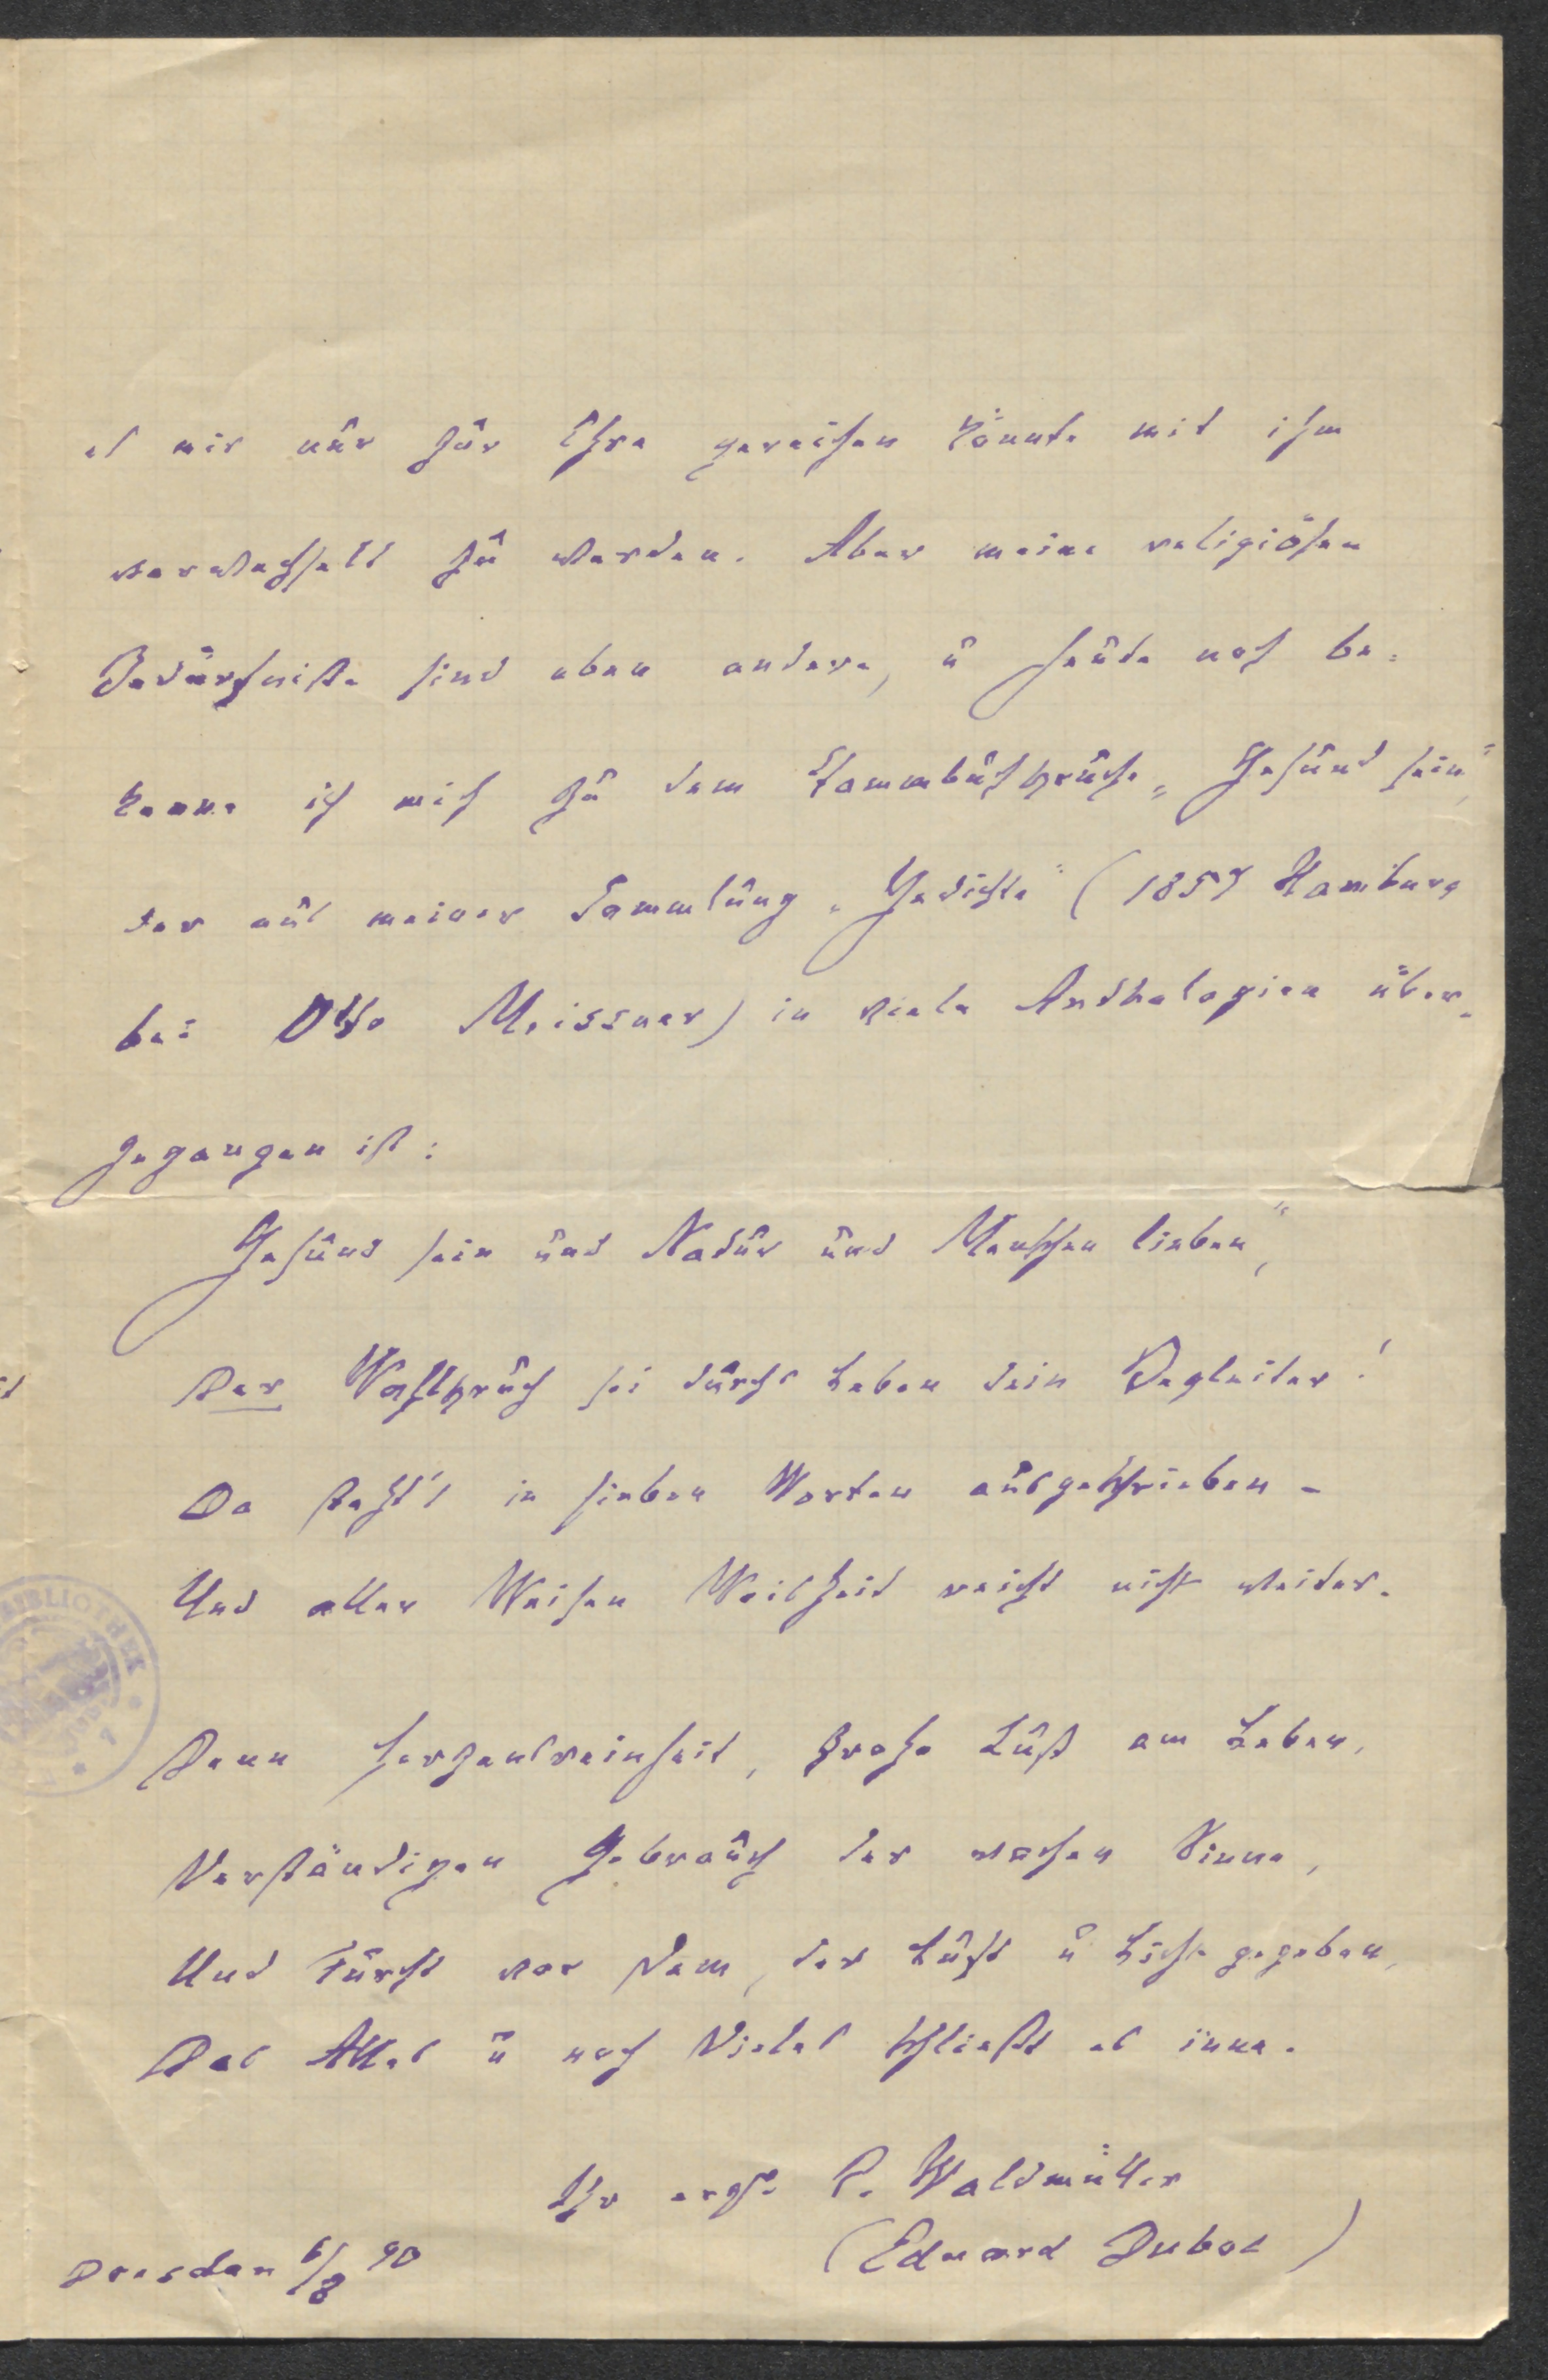 es mir nur zur Ehre gereichen könnte mit ihm
verwechselt zu werden. Aber meine religiösen
Bedürfniße sind eben andere, u heute noch be-
kenne ich mich zu dem Stammbuchspruche „Gesund sein",
der aus meiner Sammlung „Gedichte" (1857 Hamburg
bei Otto Meissner) in viele Anthologien über-
gegangen ist:
Gesund sein und Natur und Menschen lieben",
Der Wahlspruch sei durchs Leben dein Begleiter!
Da steht's in sieben Worten ausgeschrieben –
Und aller Weisen Weisheit reicht nicht weiter.
Denn Herzensreinheit, große Lust am Leben,
Verständigen Gebrauch der wachen Sinne,
Und Furcht vor Dem, der Luft u Licht gegeben,
Das Alles u noch Vieles schließt es inne.
Ihr ergb. R. Waldmüller
(Eduard Duboc)
Dresden 6/8 90
BIBLIOTHEK